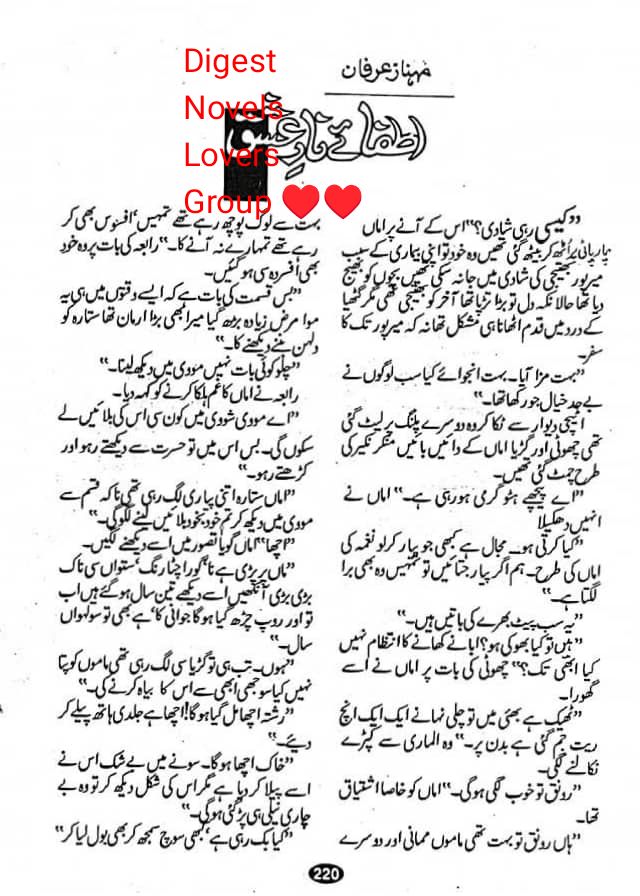 Digest
Novels
Lovers
Group ❤❤
مہناز عرفان
اطفائے نارِ عشق
”کیسی رہی شادی؟“ اس کے آنے پر اماں
چارپائی پر اُٹھ کر بیٹھ گئی تھیں وہ خود تو اپنی بیماری کے سبب
میرپور بھتیجی کی شادی میں جا نہ سکی تھیں بچوں کو بھیج
دیا تھا حالانکہ دل تو بڑا تڑپا تھا آخر کو بھتیجی تھی مگر گٹھیا
کے درد میں قدم اٹھانا ہی مشکل تھا نہ کہ میرپور تک کا
سفر۔
”بہت مزا آیا۔ بہت انجوائے کیا سب لوگوں نے
بے حد خیال جو رکھا تھا۔“
اٹیچی دیوار سے ٹکا کر وہ دوسرے پلنگ پر لیٹ گئی
تھی چھوٹی اور گڑیا اماں کے دائیں بائیں منکر نکیر کی
طرح چمٹ گئی تھیں۔
”اے پیچھے ہٹو گرمی ہو رہی ہے۔“ اماں نے
انہیں دھکیلا
”کیا کرتی ہو۔ مجال ہے کبھی جو پیار کر لو نغمہ کی
اماں کی طرح۔ ہم اگر پیار جتائیں تو تمہیں وہ بھی برا
لگتا ہے۔“
”یہ سب پیٹ بھرے کی باتیں ہیں۔“
”ہیں تو کیا بھوکی ہو؟ ابا نے کھانے کا انتظام نہیں
کیا ابھی تک؟“ چھوٹی کی بات پر اماں نے اسے
گھورا۔
”ٹھیک ہے بھئی میں تو چلی نہانے ایک ایک انچ
ریت جم گئی ہے بدن پر۔“ وہ الماری سے کپڑے
نکالنے لگی۔
”رونق تو خوب لگی ہو گی۔“ اماں کو خاصا اشتیاق
تھا۔
”ہاں رونق تو بہت تھی ماموں ممانی اور دوسرے
بہت سے لوگ پوچھ رہے تھے تمہیں‘ افسوس بھی کر
رہے تھے تمہارے نہ آنے کا۔“ رابعہ کی بات پر وہ خود
بھی افسردہ سی ہو گئیں۔
”بس قسمت کی بات ہے کہ ایسے وقتوں میں ہی یہ
موا مرض زیادہ بڑھ گیا میرا بھی بڑا ارمان تھا ستارہ کو
دلہن بنے دیکھنے کا۔“
”چلو کوئی بات نہیں مووی میں دیکھ لینا۔“
رابعہ نے اماں کا غم ہلکا کرنے کو کہہ دیا۔
”اے مووی شووی میں کون سی اس کی بلائیں لے
سکوں گی۔ بس اس میں تو حسرت سے دیکھتے رہو اور
کڑھتے رہو۔“
”اماں ستارہ اتنی پیاری لگ رہی تھی نا کہ قسم سے
مووی میں دیکھ کر تم خود بخود بلائیں لینے لگو گی۔“
”اچھا“ اماں گویا تصور میں اسے دیکھنے لگیں۔
”ماں پر پڑی ہے نا‘ گورا چٹا رنگ‘ ستواں سی ناک
بڑی بڑی آنکھیں اسے دیکھے تین سال ہو گئے ہیں اب
تو اور روپ چڑھ گیا ہو گا جوانی کا‘ ہے بھی تو سولہواں
سال۔“
”ہوں۔ تب ہی تو گڑیا سی لگ رہی تھی ماموں کو پتا
نہیں کیا سوجھی ابھی سے اس کا بیاہ کرنے کی۔“
”رشتہ اچھا مل گیا ہو گا! اچھا ہے جلدی ہاتھ پیلے کر
دیے۔“
”خاک اچھا ہو گا۔ سونے میں بے شک اس نے
اسے پیلا کر دیا ہے مگر اس کی شکل دیکھ کر تو وہ بے
چاری نیلی ہی پڑ گئی ہو گی۔“
”کیا بک رہی ہے‘ کبھی سوچ سمجھ کر بھی بول لیا کر“
220